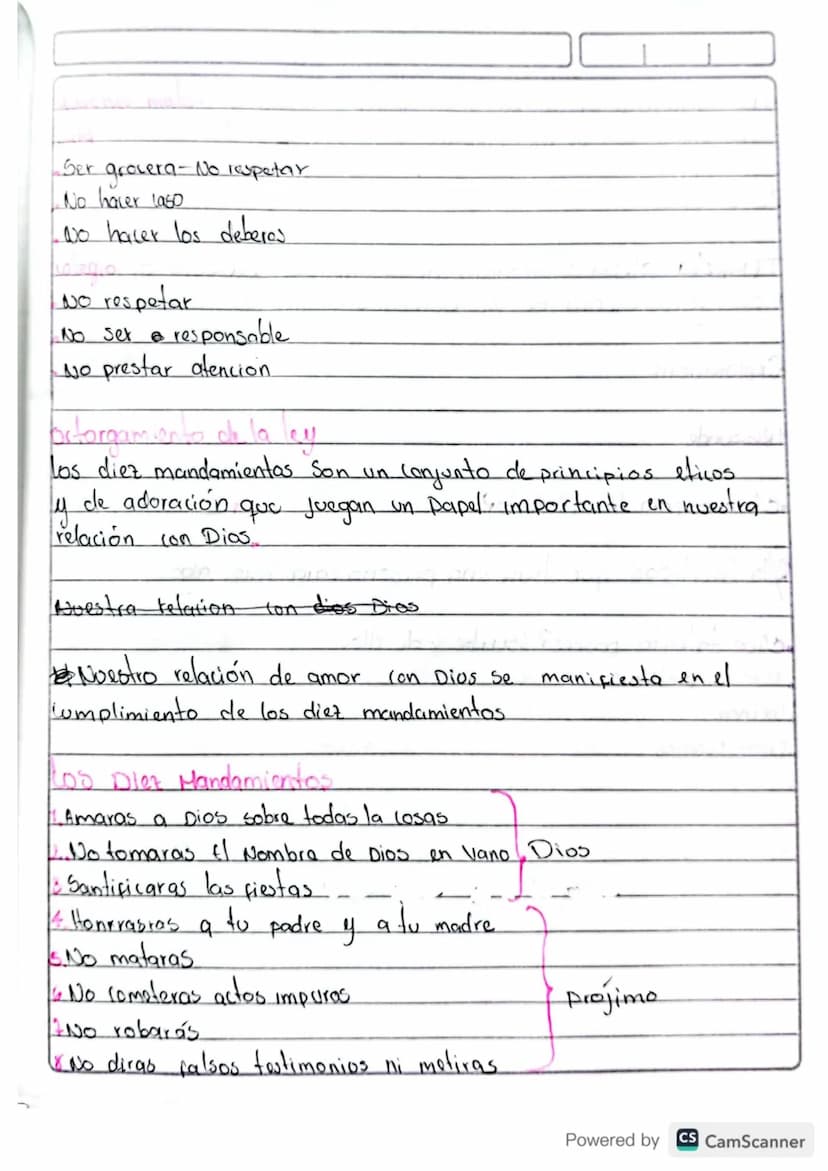 .Ser grovera - No respetar
.No hacer caso
.No hacer los deberes
.No respetar
.No ser responsable
.No prestar atencion
octorgamiento de la ley
los diez mandamientos Son un conjunto de principios eticos
y de adoración que juegan un papel importante en nuestra
relación con Dios.
Nuestra relacion con dios Dios
Nuestro relación de amor con Dios se manifiesta en el
cumplimiento de los diez mandamientos
los Diez Mandamientos
1.Amaras a Dios sobre todas la cosas
2.No tomaras El Nombra de Dios en Vano Dios
3 Santificaras las fiestas
4.Honrraras a tu padre y a tu madre
5.No mataras
6 No cometeras actos impuros prójimo
7 No robarás
8 No diras falsos testimonios ni metiras
Powered by CS CamScanner